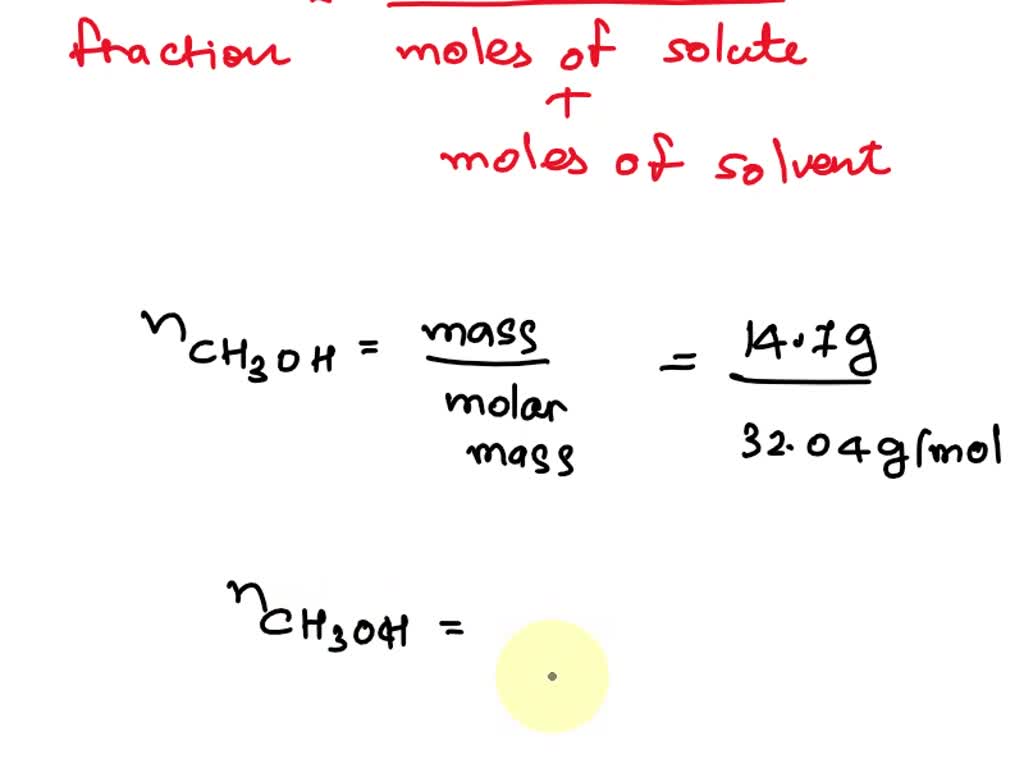 fraction moles of solute
+
moles of solvent
nCH3OH = mass / molar mass = 14.7g / 32.04g/mol
nCH3OH =